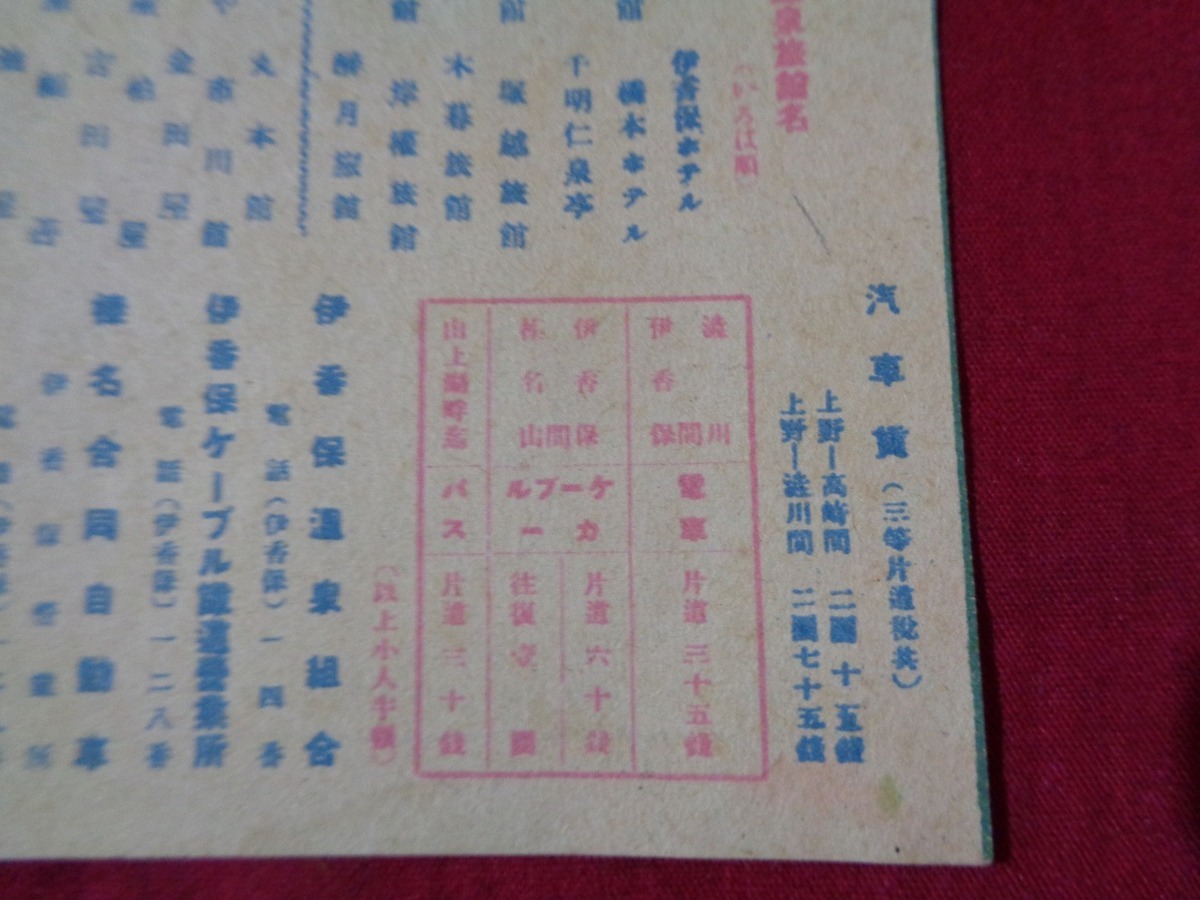 泉旅館名
(いろは順)
伊香保ホテル
橋本ホテル
千明仁泉亭
塚越旅館
木暮旅館
岸權旅館
醉月旅館
大本館
市川館
金田屋
古田屋
汽車賃(三等片道税共)
上野ー高崎間 二圓十五錢
上野ー澁川間 二圓七十五錢
澁川伊香保間 電車 片道三十五錢
伊香保榛名山間 ケーブルカー 片道六十錢 往復壹圓
山上湖畔迄 バス 片道三十錢
(以上小人半額)
伊香保温泉組合
電話(伊香保)一四番
伊香保ケーブル鐵道營業所
電話(伊香保)一二八番
榛名合同自動車
伊香保營業所